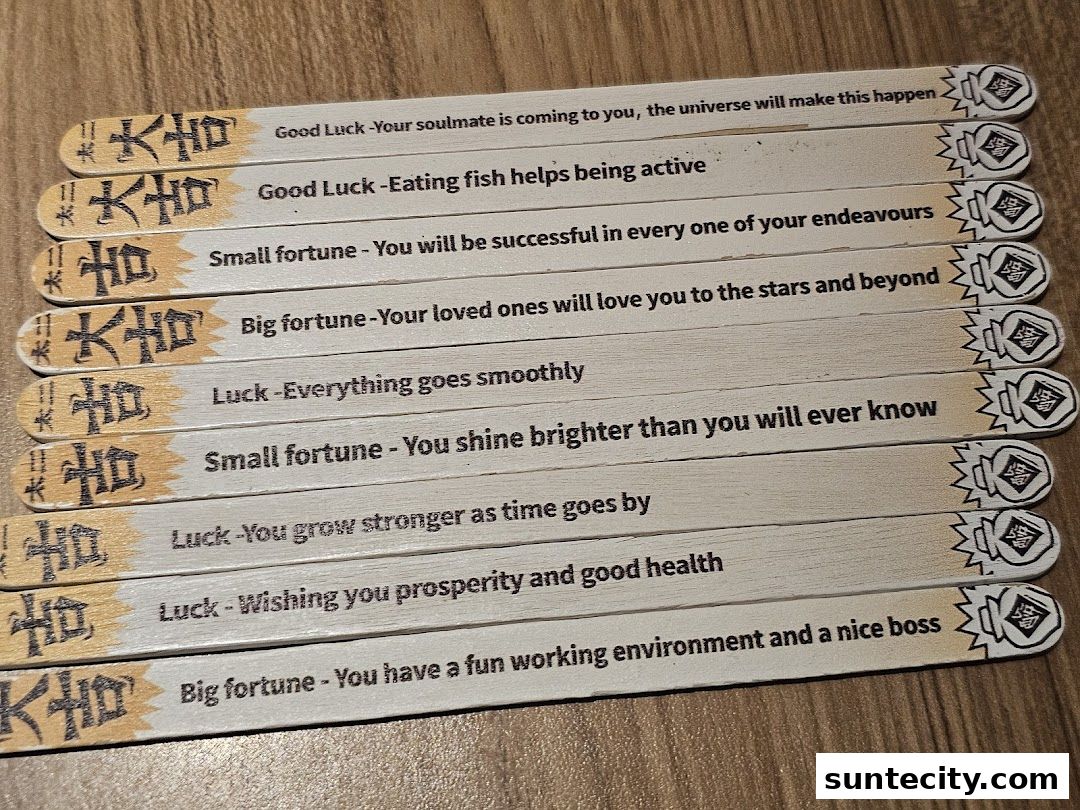 太二 大吉 Good Luck -Your soulmate is coming to you, the universe will make this happen
太二 大吉 Good Luck -Eating fish helps being active
太二 吉 Small fortune - You will be successful in every one of your endeavours
太二 大吉 Big fortune -Your loved ones will love you to the stars and beyond
太二 吉 Luck -Everything goes smoothly
太二 吉 Small fortune - You shine brighter than you will ever know
吉 Luck -You grow stronger as time goes by
吉 Luck - Wishing you prosperity and good health
大吉 Big fortune - You have a fun working environment and a nice boss
suntecity.com